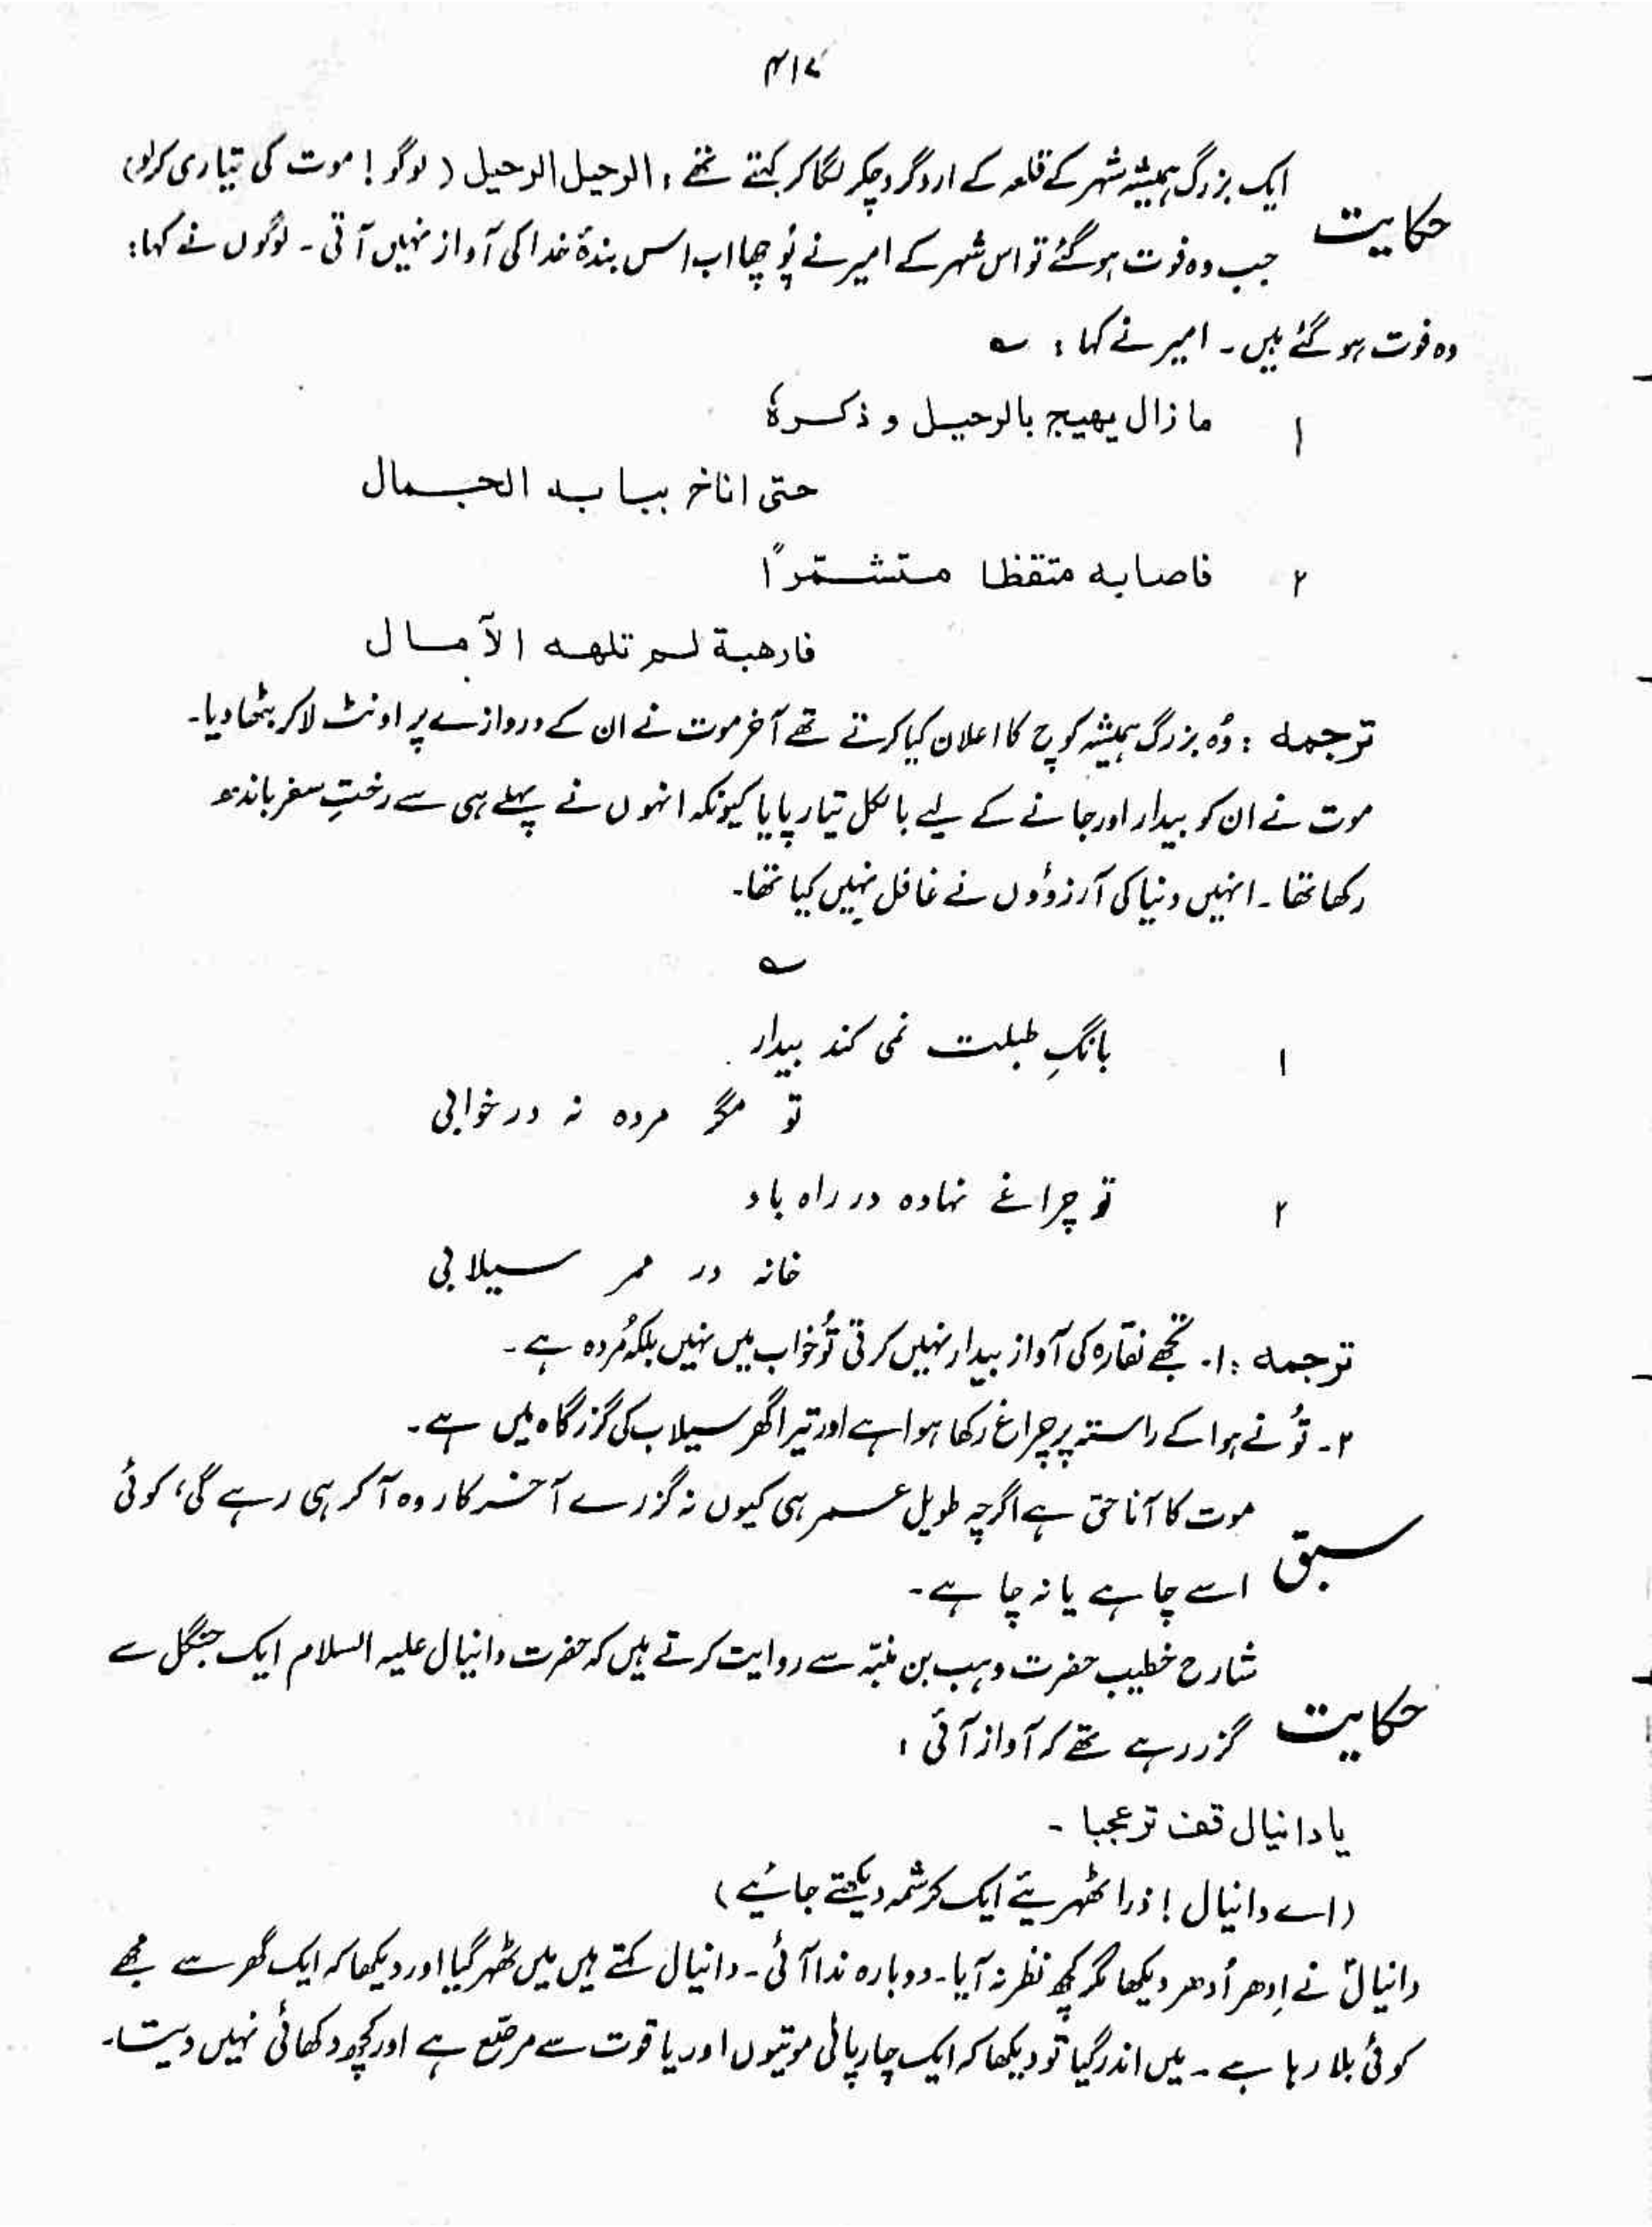 ۴۱۷
حکایت
ایک بزرگ ہمیشہ شہر کے قلعہ کے اردگرد چکر لگا کر کہتے تھے: الرحیل الرحیل (لوگو! موت کی تیاری کرلو)
جب وہ فوت ہوگئے تو اس شہر کے امیر نے پُوچھا اب اس بندۂ خدا کی آواز نہیں آتی۔ لوگوں نے کہا:
وہ فوت ہو گئے ہیں۔ امیر نے کہا: ؎
۱ ما زال یھیج بالرحیل و ذکرہٗ
حتی اناخ ببابہ الجمال
۲ فاصابہ متقظا متشتمّراً
فارھبۃ لم تلھہ الآمال
ترجمہ: وُہ بزرگ ہمیشہ کوچ کا اعلان کیا کرتے تھے آخر موت نے ان کے دروازے پر اونٹ لاکر بٹھا دیا۔
موت نے ان کو بیدار اور جانے کے لیے بالکل تیار پایا کیونکہ انہوں نے پہلے ہی سے رختِ سفر باندھ
رکھا تھا۔ انہیں دنیا کی آرزوؤں نے غافل نہیں کیا تھا۔
؎
۱ بانگِ طبلت نمی کند بیدار
تو مگر مردہ نہ درخوابی
۲ تو چراغے نہادہ در راہ باد
خانہ در ممر سیلابی
ترجمہ: ۱۔ تجھے نقارہ کی آواز بیدار نہیں کرتی تُو خواب میں نہیں بلکہ مُردہ ہے۔
۲۔ تُو نے ہوا کے راستہ پر چراغ رکھا ہوا ہے اور تیرا گھر سیلاب کی گزرگاہ میں ہے۔
سبق
موت کا آنا حق ہے اگرچہ طویل عمر ہی کیوں نہ گزرے آخر کار وہ آکر ہی رہے گی، کوئی
اسے چاہے یا نہ چاہے۔
حکایت
شارح خطیب حضرت وہب بن منبّہ سے روایت کرتے ہیں کہ حضرت دانیال علیہ السلام ایک جنگل سے
گزر رہے تھے کہ آواز آئی:
یا دانیال قف تر عجبا۔
(اے دانیال! ذرا ٹھہریئے ایک کرشمہ دیکھتے جائیے)
دانیالؑ نے اِدھر اُدھر دیکھا مگر کچھ نظر نہ آیا۔ دوبارہ ندا آئی۔ دانیال کہتے ہیں میں ٹھہر گیا اور دیکھا کہ ایک گھر سے مجھے
کوئی بلا رہا ہے۔ میں اندر گیا تو دیکھا کہ ایک چارپائی موتیوں اور یاقوت سے مرصّع ہے اور کچھ دکھائی نہیں دیتا۔